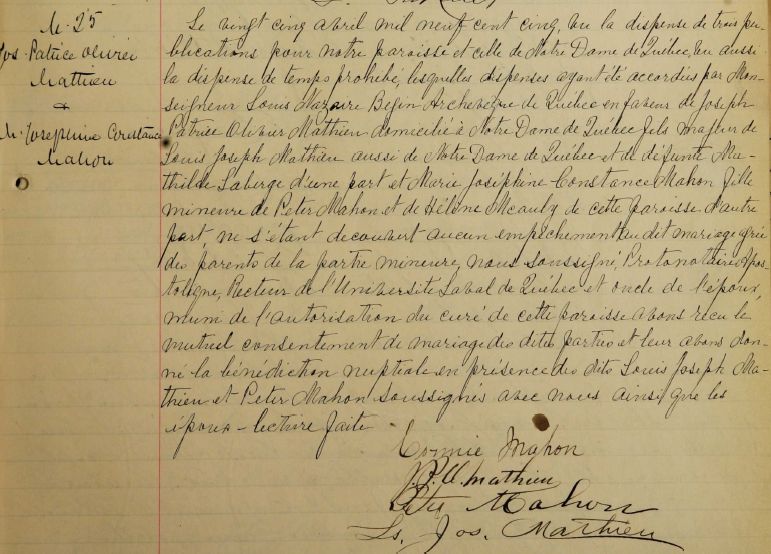 M-25
Jos. Patrice Olivier
Mathieu
&
M. Josephine Constance
Mahon
Le vingt cinq avril mil neuf cent cinq, vu la dispense de trois pu-
blications pour notre paroisse et celle de Notre Dame de Québec, vu aussi
la dispense de temps prohibé, lesquelles dispenses ayant été accordées par Mon-
seigneur Louis Nazaire Begin Archevêque de Québec en faveur de Joseph
Patrice Olivier Mathieu domicilié à Notre Dame de Québec fils majeur de
Louis Joseph Mathieu aussi de Notre Dame de Québec et de défunte Ma-
thilde Laberge d'une part et Marie Joséphine Constance Mahon fille
mineure de Peter Mahon et de Hélène Mcauly de cette paroisse d'autre
part, ne s'étant decouvert aucun empêchement au dit mariage
des parents de la partie mineure, nous soussigné, Protonotaire Apos-
tolique, Recteur de l'Université Laval de Québec et oncle de l'époux,
muni de l'autorisation du curé de cette paroisse avons recu le
mutuel consentement de mariage des dites parties et leur avons don-
né la bénédiction nuptiale en présence des dits Louis Joseph Ma-
thieu et Peter Mahon soussignés avec nous ainsi que les
époux - lecture faite
Connie Mahon
J.P.O. Mathieu
Peter Mahon
Ls. Jos. Mathieu